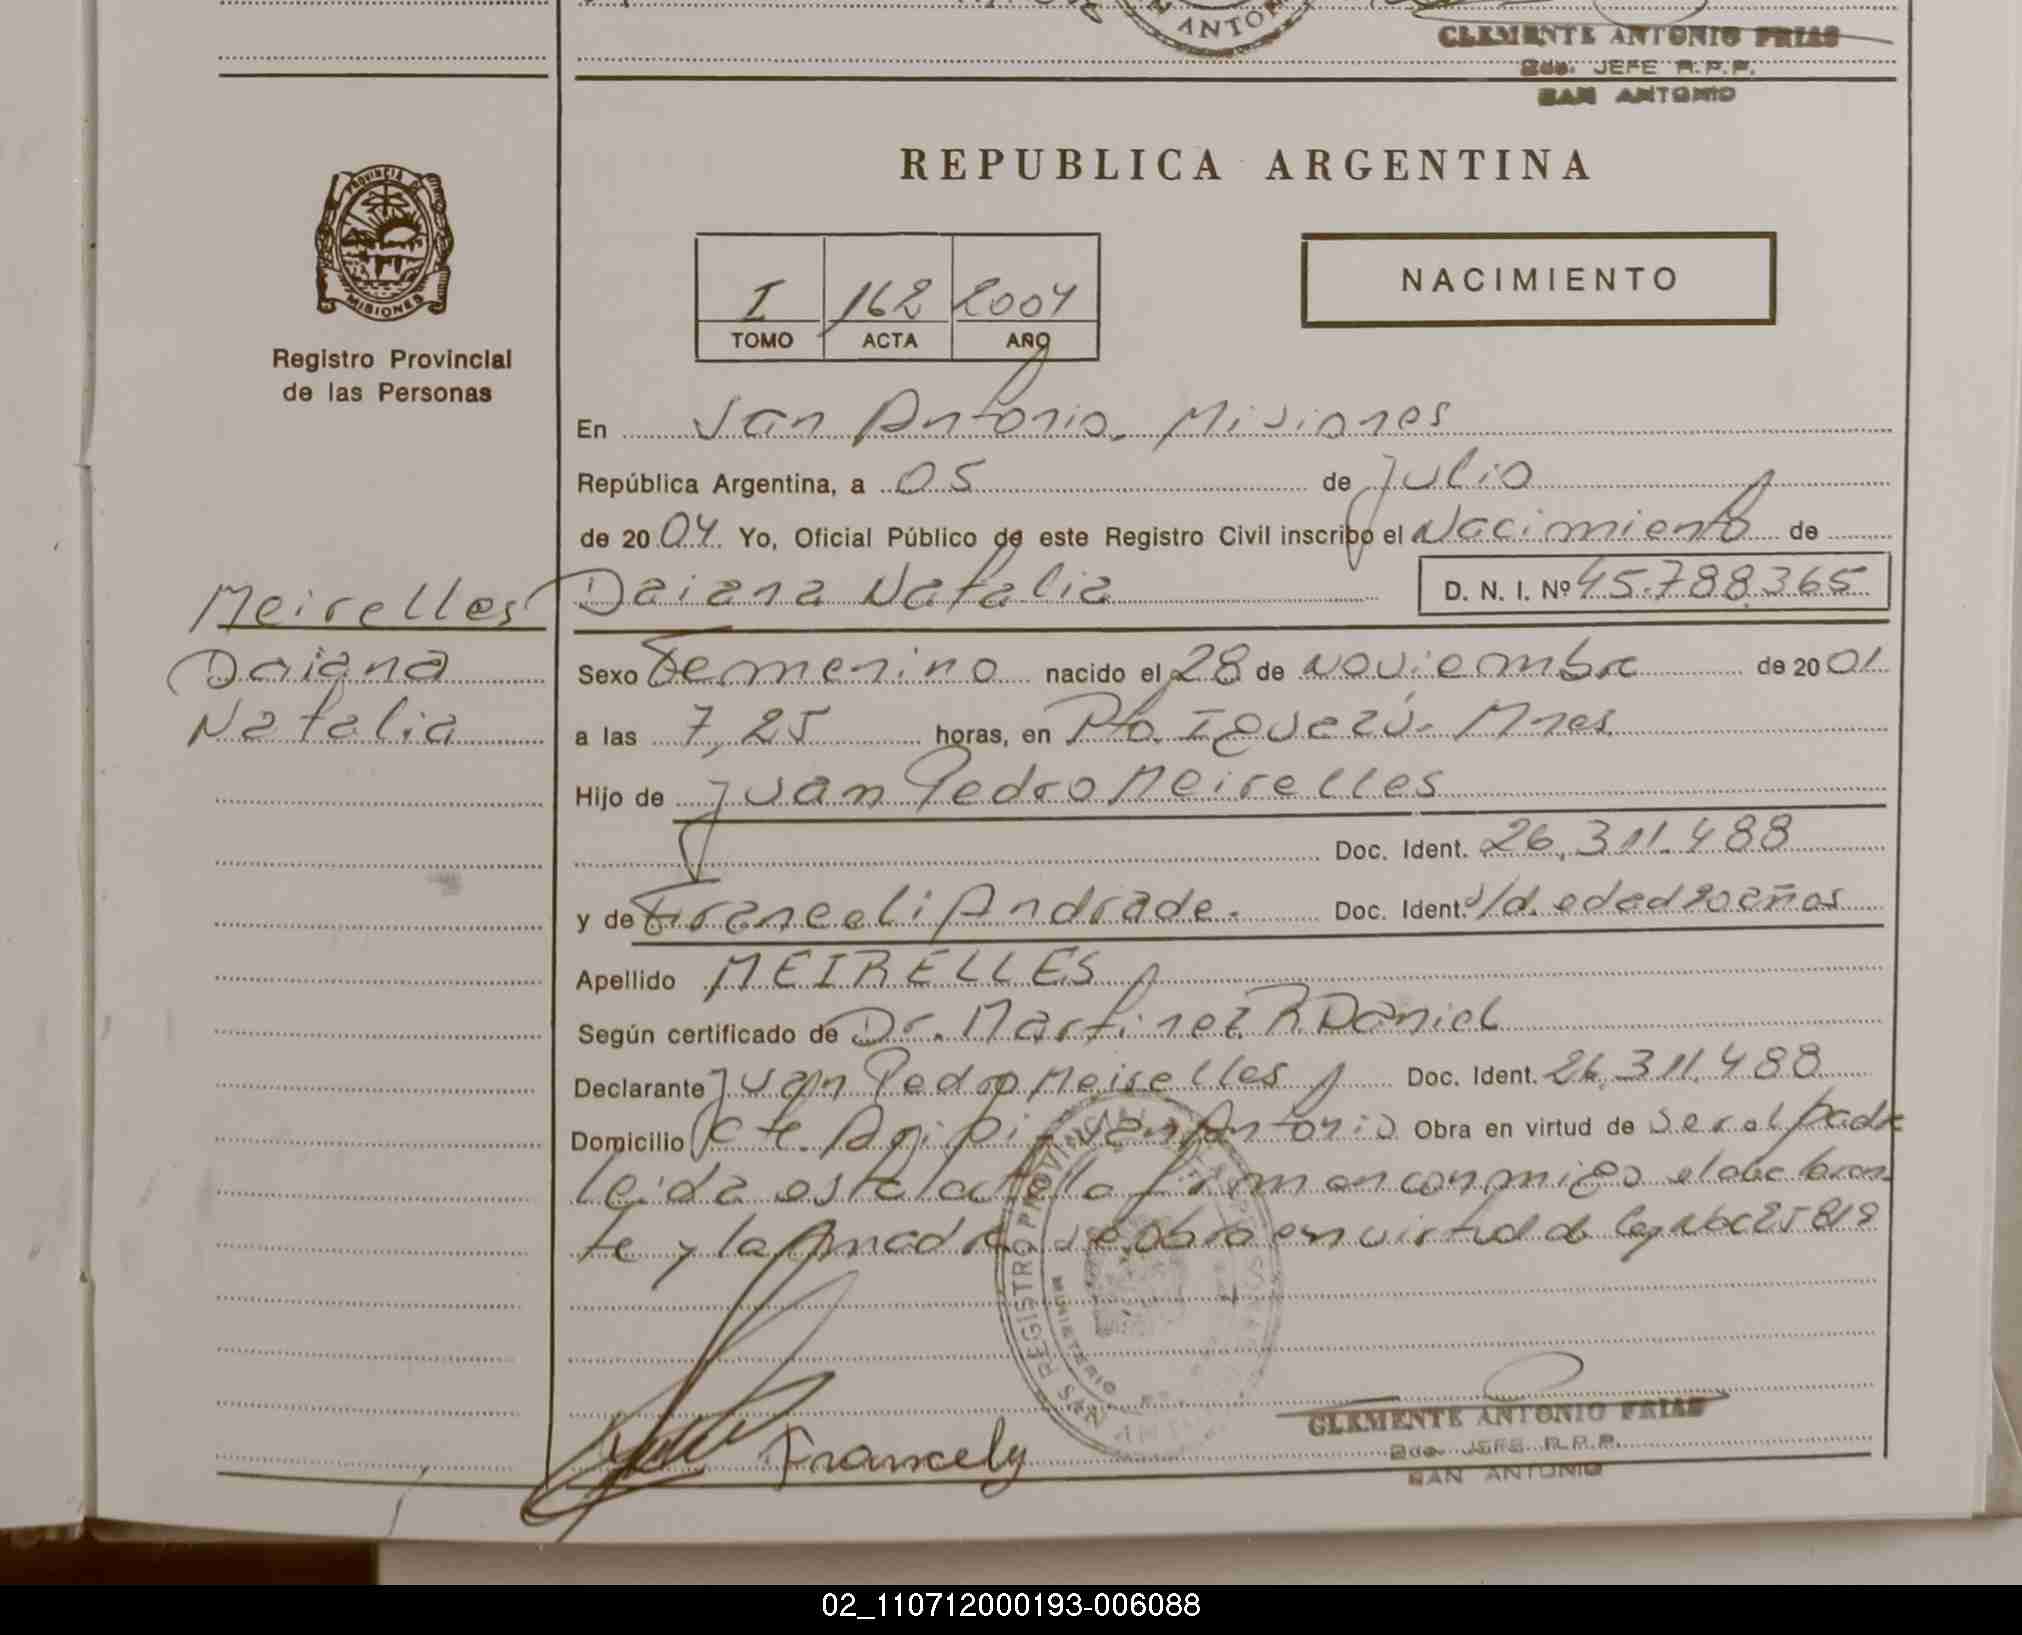 SAN ANTONIO
CLEMENTE ANTONIO FRIAS
2do. JEFE R.P.P.
SAN ANTONIO
PROVINCIA DE
MISIONES
Registro Provincial
de las Personas
REPUBLICA ARGENTINA
I 162 2004
TOMO ACTA AÑO
NACIMIENTO
En San Antonio. Misiones
República Argentina, a 05 de Julio
de 2004 Yo, Oficial Público de este Registro Civil inscribo el Nacimiento de
Daiana Natalia D. N. I. Nº 45.788.365
Meirelles
Daiana
Natalia
Sexo Femenino nacido el 28 de noviembre de 2001
a las 7,25 horas, en Pto. Iguazú. Mnes
Hijo de Juan Pedro Meirelles
Doc. Ident. 26.311.488
y de Franceli Andrade. Doc. Ident. s/d. edad 20 años
Apellido MEIRELLES
Según certificado de Dr. Martinez R Daniel
Declarante Juan Pedro Meirelles Doc. Ident. 26.311.488
Domicilio San Antonio Obra en virtud de ser el padre
leida esta la firman conmigo el declaran
te y la madre se obra en virtud de ley 25818
SAN REGISTRO PROVINCIAL
MINISTERIO
Francely
CLEMENTE ANTONIO FRIAS
2do. JEFE R.P.P.
SAN ANTONIO
02_110712000193-006088